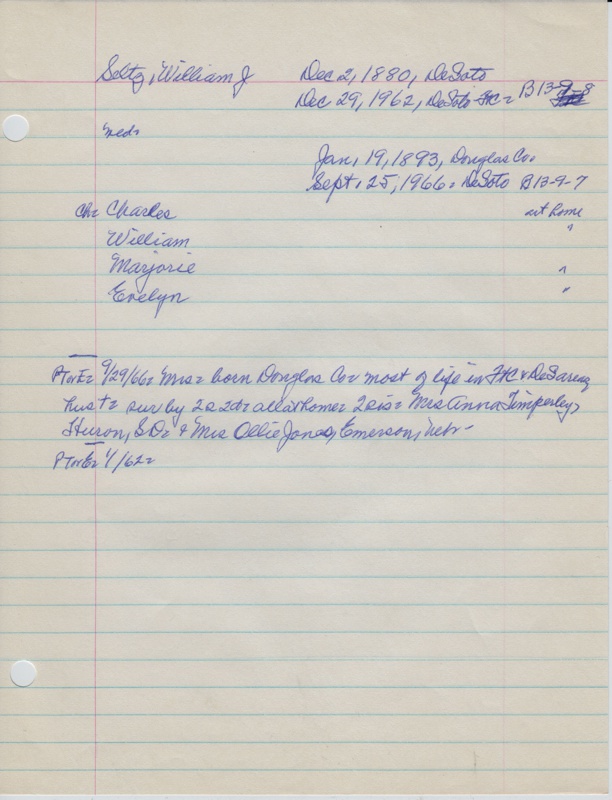 Seltz, William J Dec 2, 1880, DeSoto
Dec 29, 1962, DeSoto FtC= B13-9-8
Neds
Jan, 19, 1893, Douglas Co=
Sept. 25, 1966. DeSoto B13-9-7
Ch= Charles at home
William "
Marjorie "
Evelyn "
PTorE= 9/29/66= Mrs= born Douglas Co= most of life in FtC & DeS area
hus t= sur by 2s 2d= all at home= 2 sis= Mrs Anna Timperley,
Huron, S.D= & Mrs Ollie Jones, Emerson, Nebr-
PTorE= 1/62=